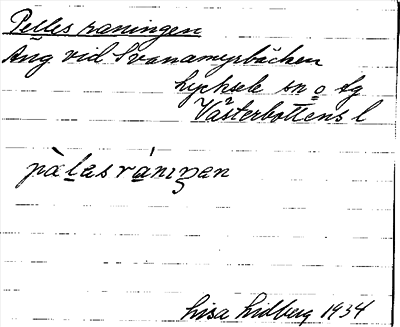 Pelles raningen
Äng vid Svanamyrbäcken
Lycksele sn o tg
Västerbottens l
pàlas ránıŋen
Lisa Lidberg 1934